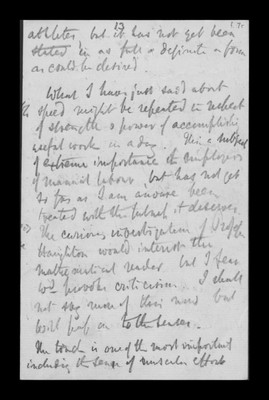 athletes but it has not yet been
stated in as full & definite a form
as could be desired.
What I have just said about
speed might be repeated in respect
of strength & power of accomplishing
useful work in a day. This is a subject
of extreme importance to employers
of manual labour, but has not yet
so far as I am aware been
treated with the fulness it deserves
The curious investigations of Prof
Haughton would interest the
mathematical reader but I fear
wd provoke criticism. I shall
not say more of this now but
will pass on to the senses.
The touch is one of the most important
including the sense of muscular efforts